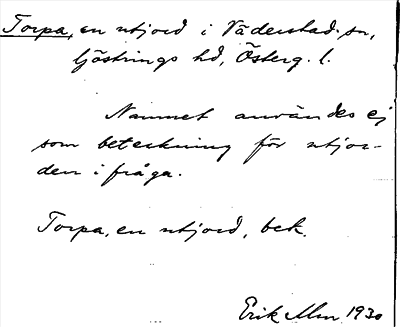 Torpa, en utjord i Väderstad sn,
Göstrings hd, Österg. l.
Namnet användes ej
som beteckning för utjor-
den i fråga.
Torpa, en utjord, bek.
Erik Alm. 1930